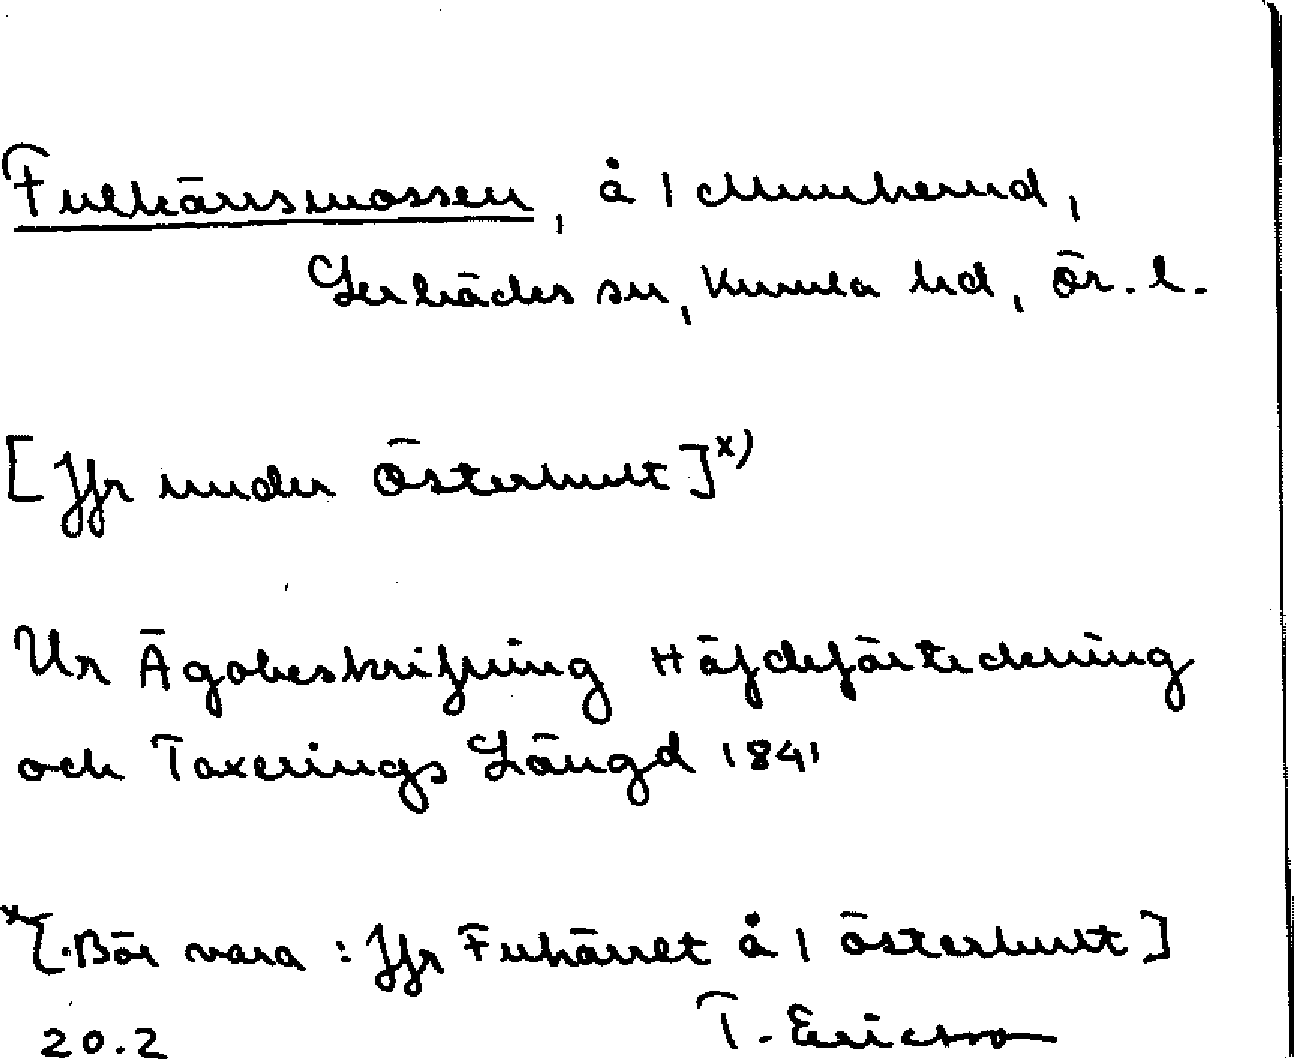 Fulkärrsmossen, å 1 Munkerud,
Lerbäcks sn, Kumla hd, Ör. l.
[Jfr under Österhult]x)
Ur Ägobeskrifning Häfdeförteckning
och Taxerings Längd 1841
x[.Bör vara: Jfr Fukärret å 1 Österhult]
20.2 T. Ericsson